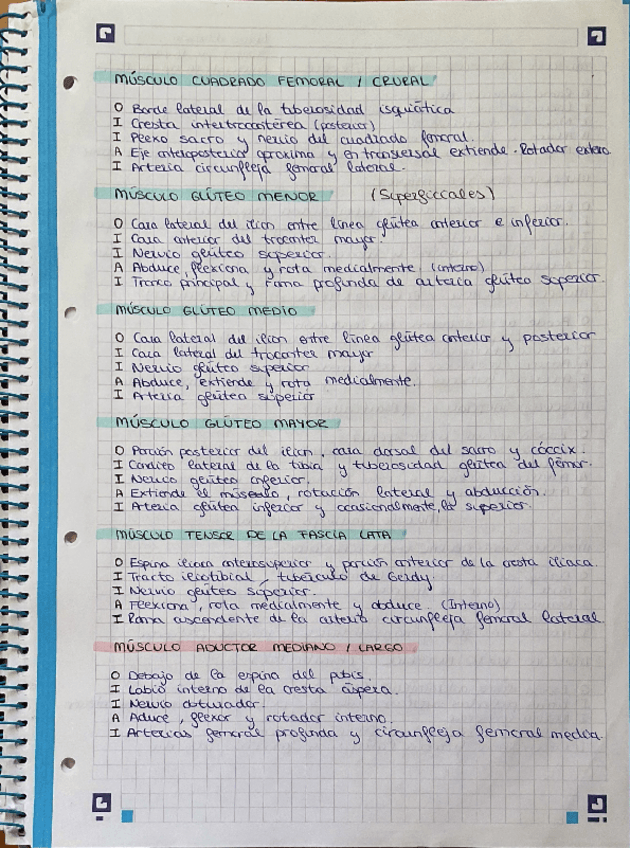 MÚSCULO CUADRADO FEMORAL / CRURAL
O Borde lateral de la tuberosidad isquiática
I Cresta intertrocantérea (posterior)
I Plexo sacro y nervio del cuadrado femoral.
A Eje anteroposterior aproxima y en transversal extiende. Rotador externo
I Arteria circunfleja femoral lateral.
MÚSCULO GLÚTEO MENOR (Superficiales)
O Cara lateral del ilion entre línea glútea anterior e inferior.
I Cara anterior del trocanter mayor.
I Nervio glúteo superior.
A Abduce, flexiona y rota medialmente (interno)
I Tronco principal y rama profunda de arteria glúteo superior.
MÚSCULO GLÚTEO MEDIO
O Cara lateral del ilion entre línea glútea anterior y posterior
I Cara lateral del trocanter mayor
I Nervio glúteo superior
A Abduce, extiende y rota medialmente.
I Arteria glútea superior
MÚSCULO GLÚTEO MAYOR
O Porción posterior del ilion, cara dorsal del sacro y cóccix.
I Condilo lateral de la tibia y tuberosidad glútea del fémur.
I Nervio glúteo inferior.
A Extiende el músculo, rotación lateral y abducción.
I Arteria glútea inferior y ocasionalmente, la superior.
MÚSCULO TENSOR DE LA FASCIA LATA
O Espina iliaca anterosuperior y porción anterior de la cresta iliaca.
I Tracto iliotibial, tubérculo de Gerdy.
I Nervio glúteo superior.
A Flexiona, rota medialmente y abduce. (Interno)
I Rama ascendente de la arteria circunfleja femoral lateral.
MÚSCULO ADUCTOR MEDIANO / LARGO
O Debajo de la espina del pubis.
I Labio interno de la cresta áspera.
I Nervio obturador.
A Aduce, flexor y rotador interno.
I Arterias femoral profunda y circunfleja femoral media.